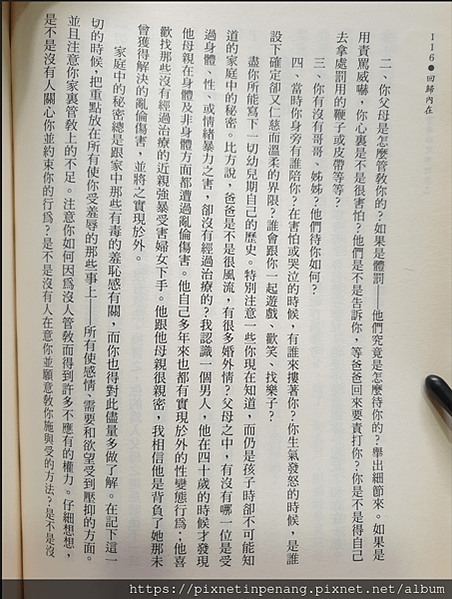 116●回歸內在
二、你父母是怎麼管教你的？如果是體罰——他們究竟是怎麼待你的？舉出細節來。如果是
用責罵威嚇，你心裏是不是很害怕？他們是不是告訴你，等爸爸回來要責打你？你是不是得自己
去拿處罰用的鞭子或皮帶等等？
三、你有沒有哥哥、姊姊？他們待你如何？
四、當時你身旁有誰陪你？在害怕或哭泣的時候，有誰來摟著你？你生氣發怒的時候，是誰
設下確定卻又仁慈而溫柔的界限？誰會跟你一起遊戲、歡笑、找樂子？
盡你所能寫下一切幼兒期自己的歷史。特別注意一些你現在知道，而仍是孩子時卻不可能知
道的家庭中的秘密。比方說，爸爸是不是很風流，有很多婚外情？父母之中，有沒有哪一位是受
過身體、性、或情緒暴力之害，卻沒有經過治療的？我認識一個男人，他在四十歲的時候才發現
他母親在身體及非身體方面都遭過亂倫傷害。他自己多年來也都有實現於外的性變態行為：他喜
歡找那些沒有經過治療的近親強暴受害婦女下手。他跟他母親很親密，我相信他是背負了她那未
曾獲得解決的亂倫傷害，並將之實現於外。
家庭中的秘密總是跟家中那些有毒的羞恥感有關，而你也得對此儘量多做了解。在記下這一
切的時候，把重點放在所有使你受羞辱的那些事上——所有使感情、需要和欲望受到壓抑的方面。
並且注意你家裏管教上的不足。注意你如何因為沒人管教而得到許多不應有的權力。仔細想想，
是不是沒有人關心你並約束你的行為？是不是沒有人在意你並願意教你施與受的方法？是不是沒
https://pixnetinpenang.pixnet.net/album